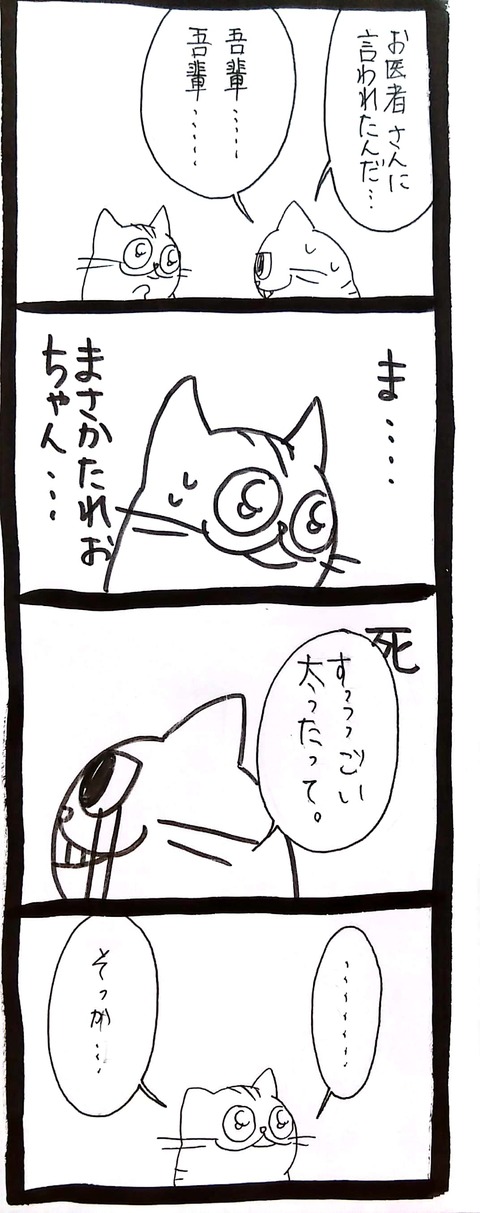 お医者さんに
言われたんだ…
吾輝……
吾輩……
ま……
まさかたれお
ちゃん…
死
すっっっごい
太ったって。
………
そっか…